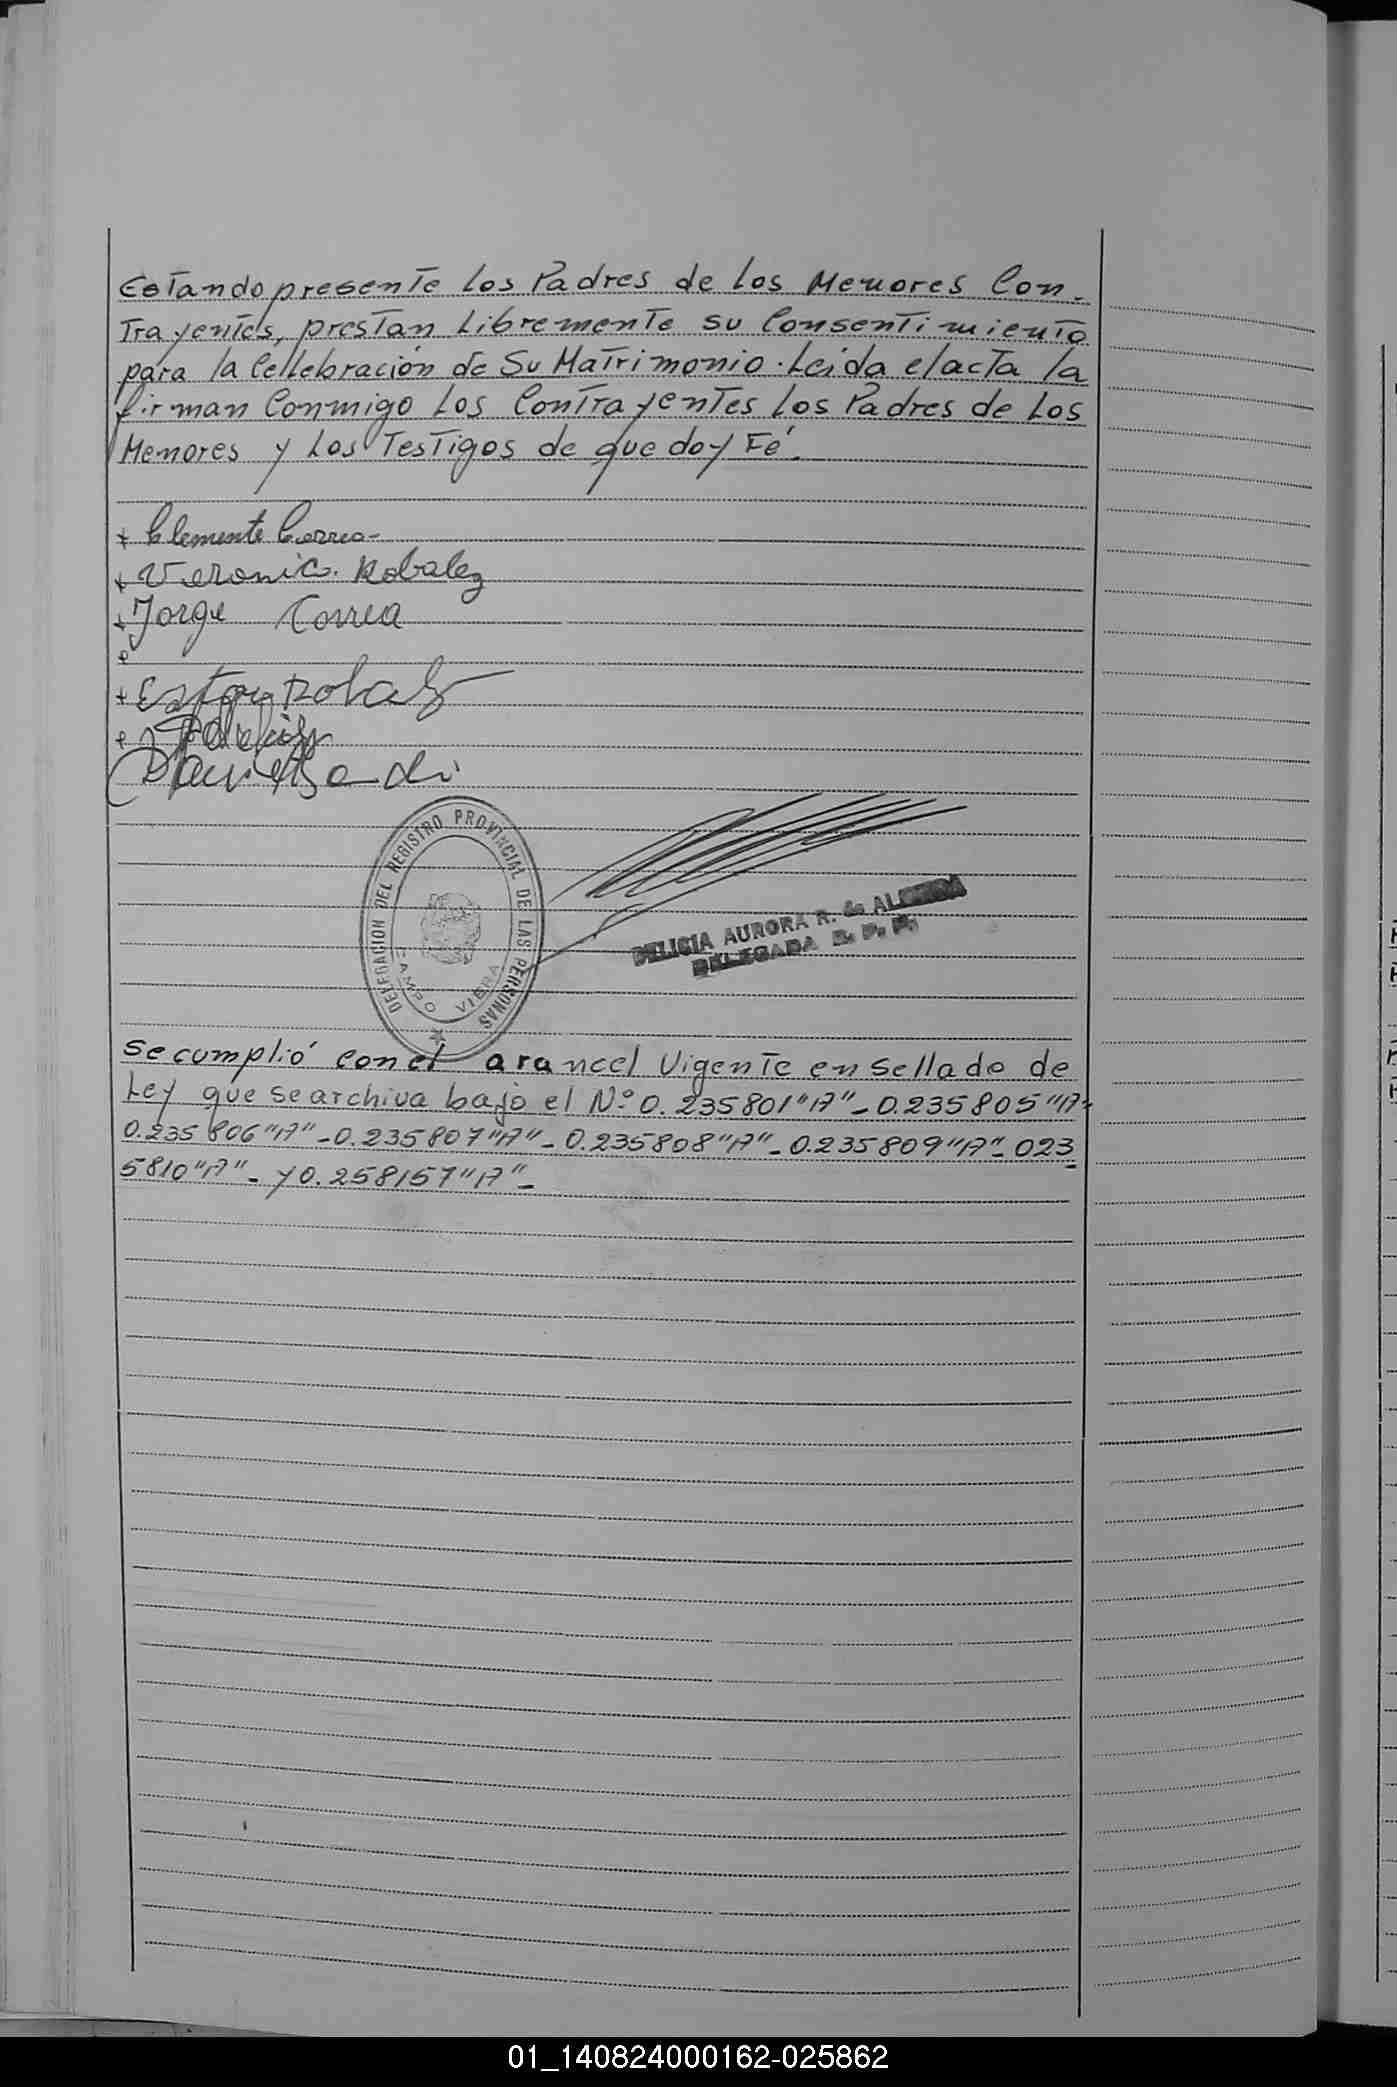 Estando presente Los Padres de Los Menores Con-
Trayentes, prestan Libremente su Consentimiento
para la Cellebración de Su Matrimonio. Leída el acta la
firman Conmigo Los Contrayentes Los Padres de Los
Menores y Los Testigos de que doy Fé.
+ Clemente Correa-
+ Veronic. Robalez
+ Jorge Correa
DELEGACION DEL REGISTRO PROVINCIAL DE LAS PERSONAS
CAMPO VIERA
DELICIA AURORA R. de ALMEIDA
DELEGADA R. P. P.
Se cumplió con el arancel Vigente en Sellado de
Ley que se archiva bajo el Nº 0.235801"A"-0.235805"A"-
0.235806"A"-0.235807"A"-0.235808"A"-0.235809"A"-023
5810"A"- y 0.258157"A"-
01_140824000162-025862